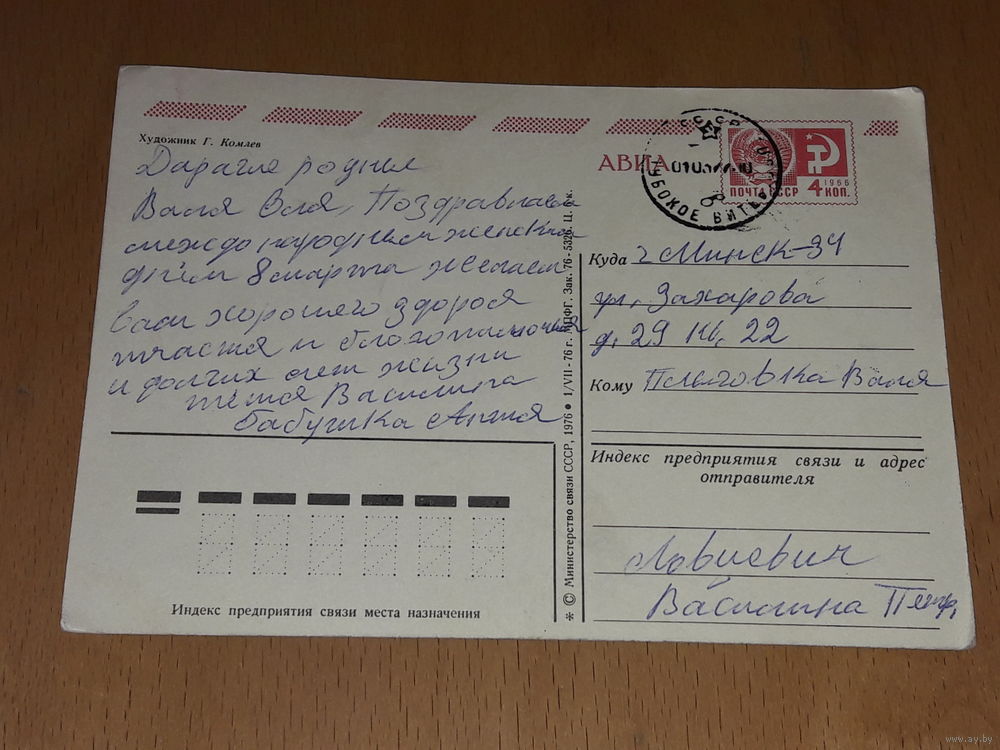 Художник Г. Комлев
Дарагие родния
Валя Оля, Поздравляем
междонародным женским
днём 8 марта желаем
Вам хорошего здоровя
щастя и благополучия
и долгих лет жизни
тётя Василина
бабушка Анна
АВИА
ПОЧТА СССР
1966
4 КОП.
СССР
Куда г Минск-34
ул, Захарова
д. 29 кв. 22
Кому Валя
Индекс предприятия связи и адрес
отправителя
Василина Петр,
Индекс предприятия связи места назначения
* © Министерство связи СССР, 1976 ● 1/VII - 76 г. МПФГ. Зак. 76 - 5326. Ц. 5 к.
www.ay.by